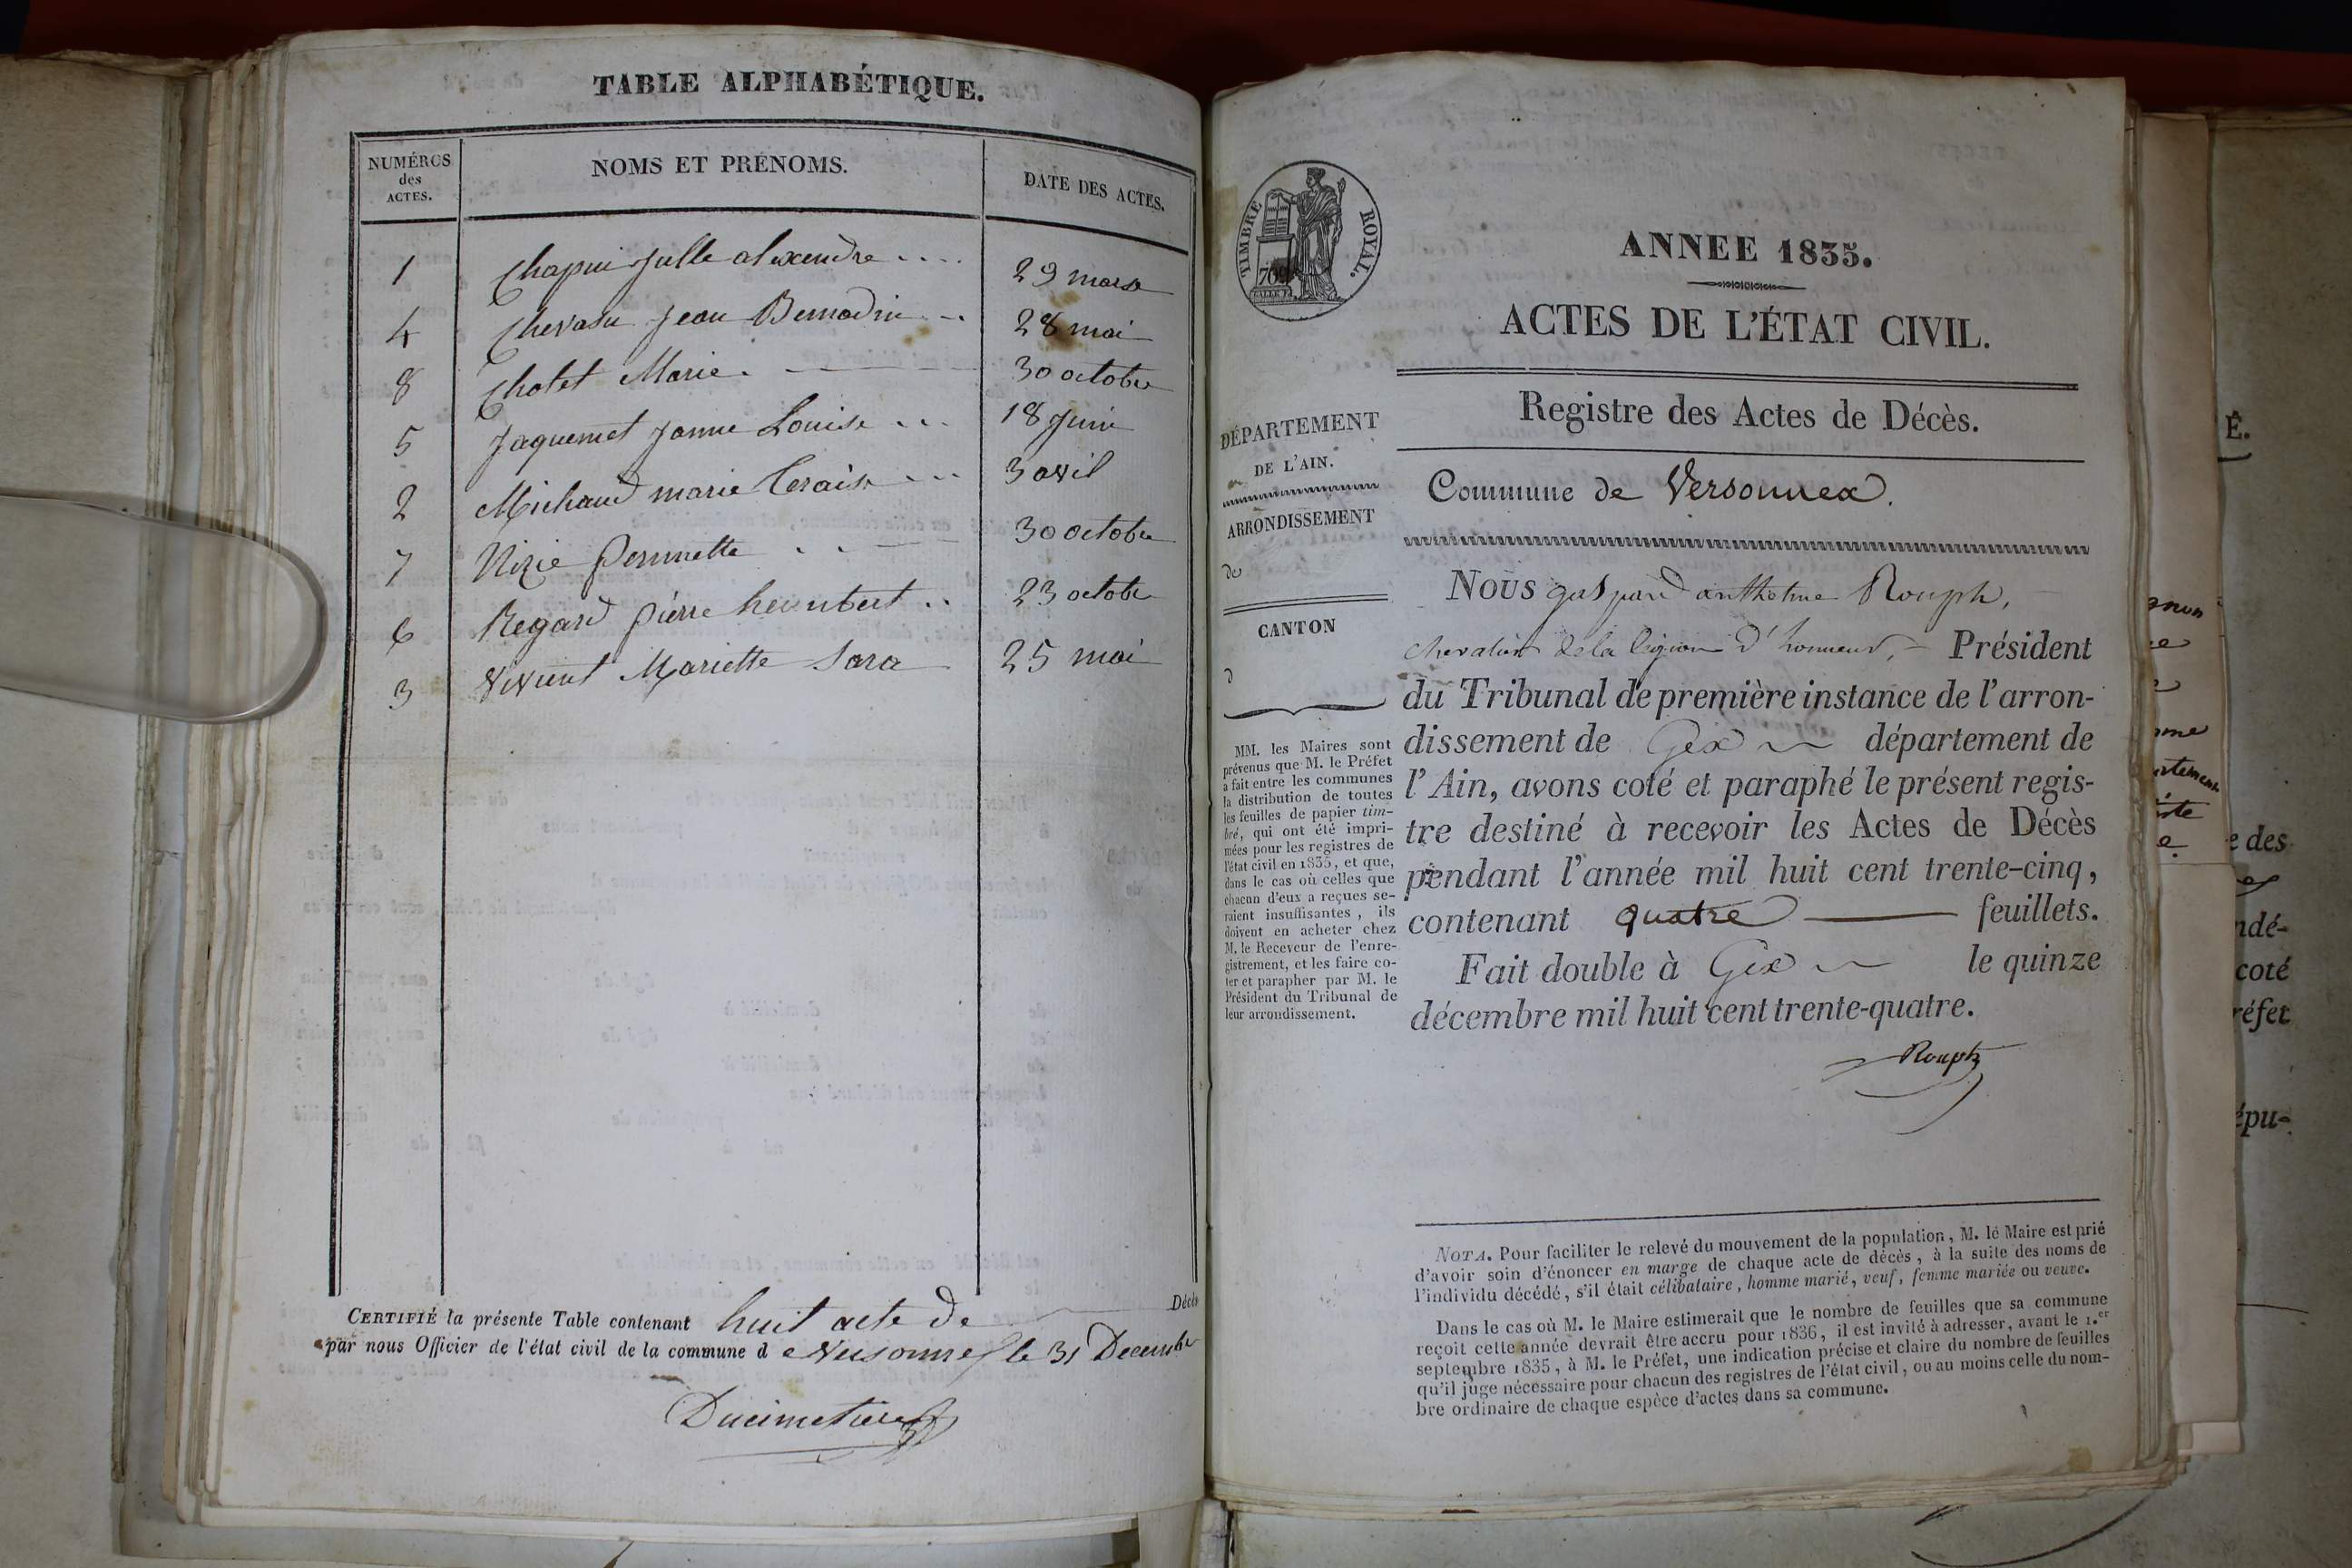 TABLE ALPHABÉTIQUE.
NUMÉROS des ACTES. NOMS ET PRÉNOMS. DATE DES ACTES.
1 Chapui Julle alexendre .... 29 mars
4 Chevasu Jean Bernadin -. 28 mai
8 Chatet Marie. 30 octobre
5 Jaquemet Janne Louise ... 18 Juin
2 Michaud marie Teraise ... 3 avril
7 Nizie Pernnette . . 30 octobre
6 Regard pierre heumbert .. 23 octobre
3 Vivient Mariette Sara 25 mai
CERTIFIÉ la présente Table contenant huit acte de Décès
par nous Officier de l'état civil de la commune d e Versonnex le 31 Decembre
Ducimetiere
TIMBRE ROYAL.
ANNEE 1835.
ACTES DE L'ÉTAT CIVIL.
Registre des Actes de Décès.
DÉPARTEMENT
DE L'AIN.
ARRONDISSEMENT
de
CANTON
d
MM. les Maires sont
prévenus que M. le Préfet
a fait entre les communes
la distribution de toutes
les feuilles de papier tim-
bré, qui ont été impri-
mées pour les registres de
l'état civil en 1835, et que,
dans le cas où celles que
chacun d'eux a reçues se-
raient insuffisantes, ils
doivent en acheter chez
M. le Receveur de l'enre-
gistrement, et les faire co-
ter et parapher par M. le
Président du Tribunal de
leur arrondissement.
Commune de Versonnex.
NOUS gaspard anthelme Rouph,
chevalier de la légion d'honneur, - Président
du Tribunal de première instance de l'arron-
dissement de Gex département de
l'Ain, avons coté et paraphé le présent regis-
tre destiné à recevoir les Actes de Décès
pendant l'année mil huit cent trente-cinq,
contenant quatre feuillets.
Fait double à Gex le quinze
décembre mil huit cent trente-quatre.
Rouph
NOTA. Pour faciliter le relevé du mouvement de la population, M. le Maire est prié
d'avoir soin d'énoncer en marge de chaque acte de décès, à la suite des noms de
l'individu décédé, s'il était célibataire, homme marié, veuf, femme mariée ou veuve.
Dans le cas où M. le Maire estimerait que le nombre de feuilles que sa commune
reçoit cette année devrait être accru pour 1836, il est invité à adresser, avant le 1.er
septembre 1835, à M. le Préfet, une indication précise et claire du nombre de feuilles
qu'il juge nécessaire pour chacun des registres de l'état civil, ou au moins celle du nom-
bre ordinaire de chaque espèce d'actes dans sa commune.
É.
e des
ndé-
coté
réfet
épu-